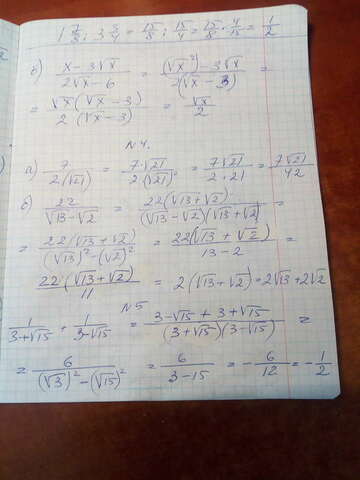 1 7/8 ; 3 3/4 = 15/8 ; 15/4 = 15/8 · 4/15 = 1/2
б) (x - 3√x)/(2√x - 6) = ((√x)² - 3√x)/(2(√x - 3)) =
= (√x(√x - 3))/(2(√x - 3)) = √x/2
N4.
а) 7/(2(√21)) = (7·√21)/(2(√21)²) = (7√21)/(2·21) = (7√21)/42
б) 22/(√13 - √2) = (22(√13 + √2))/((√13 - √2)(√13 + √2)) =
= (22(√13 + √2))/((√13)² - (√2)²) = (22(√13 + √2))/(13 - 2) =
(22(√13 + √2))/11 = 2(√13 + √2) = 2√13 + 2√2
N5
1/(3+√15) + 1/(3-√15) = (3-√15 + 3+√15)/((3+√15)(3-√15)) =
= 6/((√3)² - (√15)²) = 6/(3-15) = -6/12 = -1/2